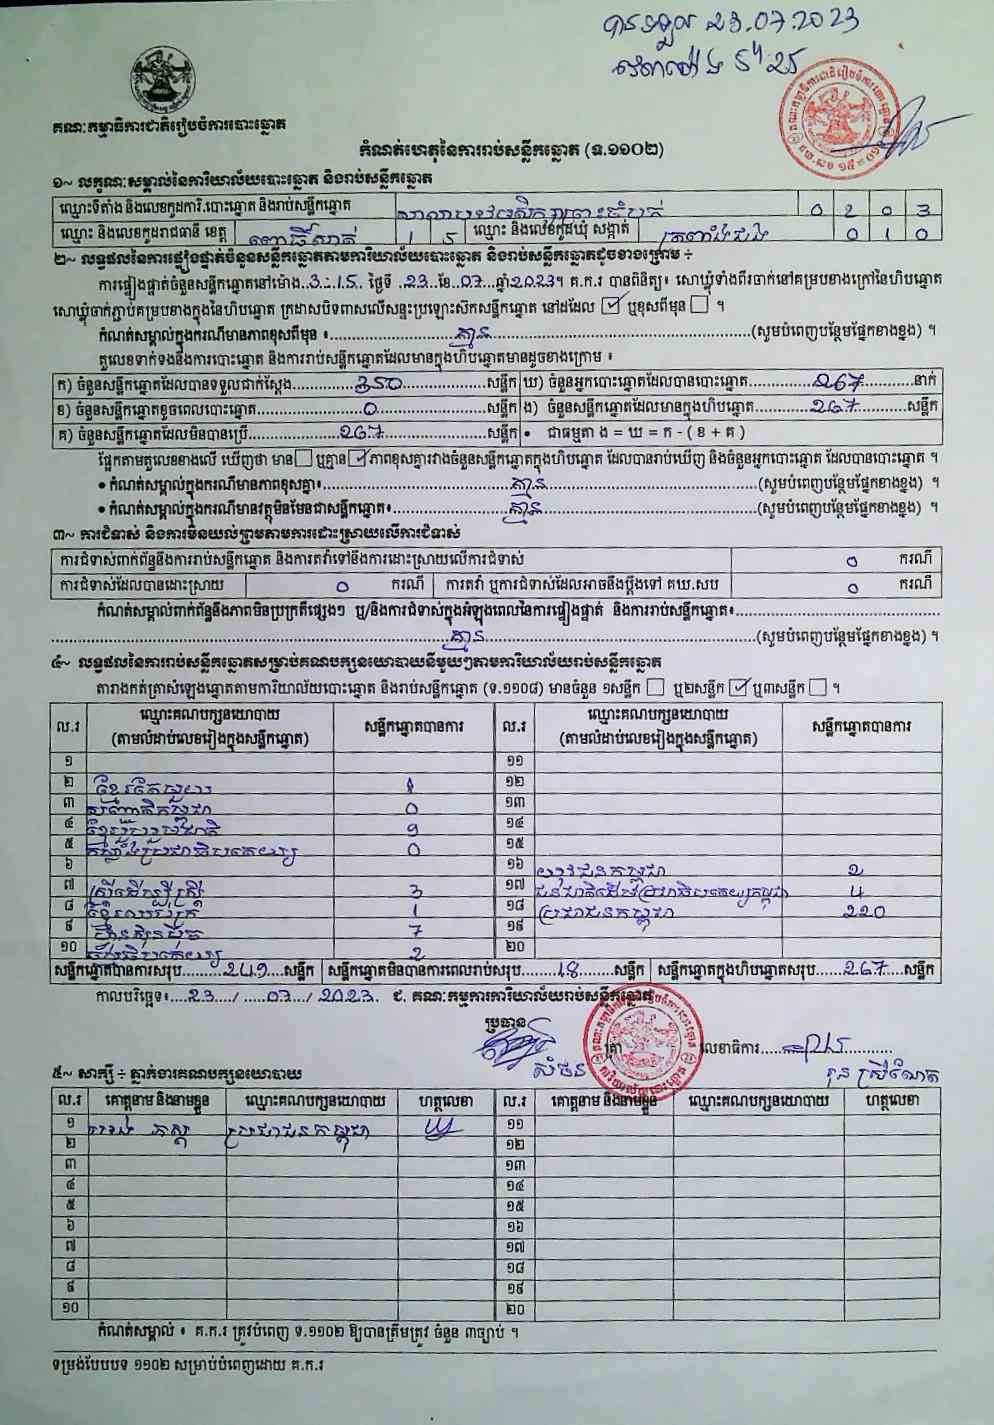 បានទទួល 23.07.2023
គណៈកម្មាធិការជាតិរៀបចំការបោះឆ្នោត
កំណត់ហេតុនៃការរាប់សន្លឹកឆ្នោត (ទ.១១០២)
១~ លក្ខណៈសម្គាល់នៃការិយាល័យបោះឆ្នោត និងរាប់សន្លឹកឆ្នោត
ឈ្មោះទីតាំង និងលេខកូដការិ.បោះឆ្នោត និងរាប់សន្លឹកឆ្នោត 0 2 0 3
ឈ្មោះ និងលេខកូដរាជធានី ខេត្ត ពោធិ៍សាត់ 1 5 ឈ្មោះ និងលេខកូដឃុំ សង្កាត់ ត្រពាំងជង 0 1 0
២~ លទ្ធផលនៃការផ្ទៀងផ្ទាត់ចំនួនសន្លឹកឆ្នោតតាមការិយាល័យបោះឆ្នោត និងរាប់សន្លឹកឆ្នោតដូចខាងក្រោម ÷
ការផ្ទៀងផ្ទាត់ចំនួនសន្លឹកឆ្នោតនៅម៉ោង 3:15 ថ្ងៃទី 23 ខែ 07 ឆ្នាំ 2023។ គ.ក.រ បានពិនិត្យ៖ សោឃ្លុំទាំងពីរចាក់នៅគម្របខាងក្រៅនៃហិបឆ្នោត
សោឃ្លុំចាក់ភ្ជាប់គម្របខាងក្នុងនៃហិបឆ្នោត ក្រដាសបិទពាសលើសន្ទះប្រឡោះស៊កសន្លឹកឆ្នោត នៅដដែល ☑ ឬខុសពីមុន ☐ ។
កំណត់សម្គាល់ក្នុងករណីមានភាពខុសពីមុន ៖ គ្មាន (សូមបំពេញបន្ថែមផ្នែកខាងខ្នង) ។
តួលេខទាក់ទងនឹងការបោះឆ្នោត និងការរាប់សន្លឹកឆ្នោតដែលមានក្នុងហិបឆ្នោតមានដូចខាងក្រោម ៖
ក) ចំនួនសន្លឹកឆ្នោតដែលបានទទួលជាក់ស្តែង 350 សន្លឹក ឃ) ចំនួនអ្នកបោះឆ្នោតដែលបានបោះឆ្នោត 267 នាក់
ខ) ចំនួនសន្លឹកឆ្នោតខូចពេលបោះឆ្នោត 0 សន្លឹក ង) ចំនួនសន្លឹកឆ្នោតដែលមានក្នុងហិបឆ្នោត 267 សន្លឹក
គ) ចំនួនសន្លឹកឆ្នោតដែលមិនបានប្រើ 267 សន្លឹក • ជាធម្មតា ង = ឃ = ក - ( ខ + គ )
ផ្អែកតាមតួលេខខាងលើ ឃើញថា មាន ☐ ឬគ្មាន ☑ ភាពខុសគ្នារវាងចំនួនសន្លឹកឆ្នោតក្នុងហិបឆ្នោត ដែលបានរាប់ឃើញ និងចំនួនអ្នកបោះឆ្នោត ដែលបានបោះឆ្នោត ។
• កំណត់សម្គាល់ក្នុងករណីមានភាពខុសគ្នា៖ គ្មាន (សូមបំពេញបន្ថែមផ្នែកខាងខ្នង) ។
• កំណត់សម្គាល់ក្នុងករណីមានវត្ថុមិនមែនជាសន្លឹកឆ្នោត៖ គ្មាន (សូមបំពេញបន្ថែមផ្នែកខាងខ្នង) ។
៣~ ការជំទាស់ និងការមិនយល់ព្រមតាមការដោះស្រាយលើការជំទាស់
ការជំទាស់ពាក់ព័ន្ធនឹងការរាប់សន្លឹកឆ្នោត និងការតវ៉ាទៅនឹងការដោះស្រាយលើការជំទាស់ 0 ករណី
ការជំទាស់ដែលបានដោះស្រាយ 0 ករណី ការតវ៉ា ឬការជំទាស់ដែលអាចនឹងប្តឹងទៅ គឃ.សប 0 ករណី
កំណត់សម្គាល់ពាក់ព័ន្ធនឹងភាពមិនប្រក្រតីផ្សេងៗ ឬ/និងការជំទាស់ក្នុងអំឡុងពេលនៃការផ្ទៀងផ្ទាត់ និងការរាប់សន្លឹកឆ្នោត៖
គ្មាន (សូមបំពេញបន្ថែមផ្នែកខាងខ្នង) ។
៤~ លទ្ធផលនៃការរាប់សន្លឹកឆ្នោតសម្រាប់គណបក្សនយោបាយនីមួយៗតាមការិយាល័យរាប់សន្លឹកឆ្នោត
តារាងកត់ត្រាសំឡេងឆ្នោតតាមការិយាល័យបោះឆ្នោត និងរាប់សន្លឹកឆ្នោត (ទ.១១០៨) មានចំនួន ១សន្លឹក ☐ ឬ២សន្លឹក ☑ ឬ៣សន្លឹក ☐ ។
ល.រ ឈ្មោះគណបក្សនយោបាយ (តាមលំដាប់លេខរៀងក្នុងសន្លឹកឆ្នោត) សន្លឹកឆ្នោតបានការ ល.រ ឈ្មោះគណបក្សនយោបាយ (តាមលំដាប់លេខរៀងក្នុងសន្លឹកឆ្នោត) សន្លឹកឆ្នោតបានការ
១ ១១
២ ១២
៣ 0 ១៣
៤ ខ្មែររួបរួមជាតិ ១៤
៥ កម្លាំងប្រជាធិបតេយ្យ 0 ១៥
៦ ១៦ យុវជនកម្ពុជា 2
៧ ស្រីដើម្បីស្រ្តី 3 ១៧ ជនជាតិដើមប្រជាធិបតេយ្យកម្ពុជា 4
៨ 1 ១៨ ប្រជាជនកម្ពុជា 220
៩ ហ៊្វុនស៊ិនប៉ិច 7 ១៩
១០ 2 ២០
សន្លឹកឆ្នោតបានការសរុប 249 សន្លឹក សន្លឹកឆ្នោតមិនបានការពេលរាប់សរុប 18 សន្លឹក សន្លឹកឆ្នោតក្នុងហិបឆ្នោតសរុប 267 សន្លឹក
កាលបរិច្ឆេទ៖ 23 / 07 / 2023 ជ. គណៈកម្មការការិយាល័យរាប់សន្លឹកឆ្នោត
ប្រធាន
ត្រា លេខាធិការ
៥~ សាក្សី ÷ ភ្នាក់ងារគណបក្សនយោបាយ
ល.រ គោត្តនាម និងនាមខ្លួន ឈ្មោះគណបក្សនយោបាយ ហត្ថលេខា ល.រ គោត្តនាម និងនាមខ្លួន ឈ្មោះគណបក្សនយោបាយ ហត្ថលេខា
១ ប្រជាជនកម្ពុជា ១១
២ ១២
៣ ១៣
៤ ១៤
៥ ១៥
៦ ១៦
៧ ១៧
៨ ១៨
៩ ១៩
១០ ២០
កំណត់សម្គាល់ ៖ គ.ក.រ ត្រូវបំពេញ ទ.១១០២ ឱ្យបានត្រឹមត្រូវ ចំនួន ៣ច្បាប់ ។
ទម្រង់បែបបទ ១១០២ សម្រាប់បំពេញដោយ គ.ក.រ